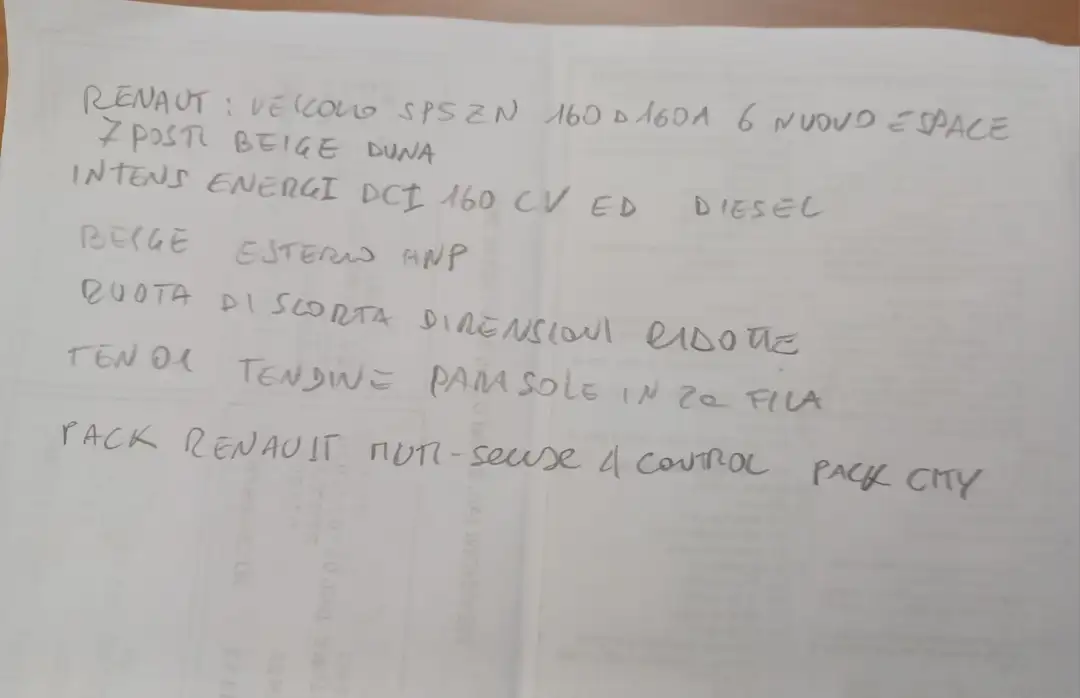 RENAUT: VEICOLO SPSZN 160D160A 6 NUOVO ESPACE
7 POSTI BEIGE DUNA
INTENS ENERGI DCI 160 CV ED DIESEL
BEIGE ESTERNO HNP
RUOTA DI SCORTA DIMENSIONI RIDOTTE
TEND1 TENDINE PARASOLE IN 2a FILA
PACK RENAULT MUTI-SENSE 4 CONTROL PACK CITY